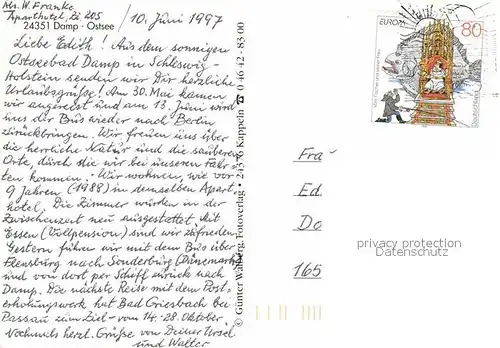 Abs. W. Franke
Aparthotel, Zi. 205
24351 Damp · Ostsee
10. Juni 1997
Liebe Edith! Aus dem sonnigen
Ostseebad Damp in Schleswig-
Holstein senden wir Dir herzliche
Urlaubsgrüße! Am 30. Mai kamen
wir angereist und am 13. Juni wird
uns der Bus wieder nach Berlin
zurückbringen. Wir freuen uns über
die herrliche Natur und die sauberen
Orte, durch die wir bei unseren Fahr-
ten kommen. Wir wohnen, wie vor
9 Jahren (1988) in demselben Apart-
hotel. Die Zimmer wurden in der
Zwischenzeit neu ausgestattet. Mit
Essen (Vollpension) sind wir zufrieden.
Gestern fuhren wir mit dem Bus über
Flensburg nach Sonderburg (Dänemark)
und von dort per Schiff zurück nach
Damp. Die nächste Reise mit dem Post-
erholungswerk hat Bad Griesbach bei
Passau zum Ziel - vom 14.-28. Oktober
Nochmals herzl. Grüße von Deiner Ursel
und Walter
© Günter Wahlberg, Fotoverlag · 24376 Kappeln ☎ 0 46 42 - 83 00
EUROPA
80
Fra
Ed
Do
165
privacy protection
Dembon.com